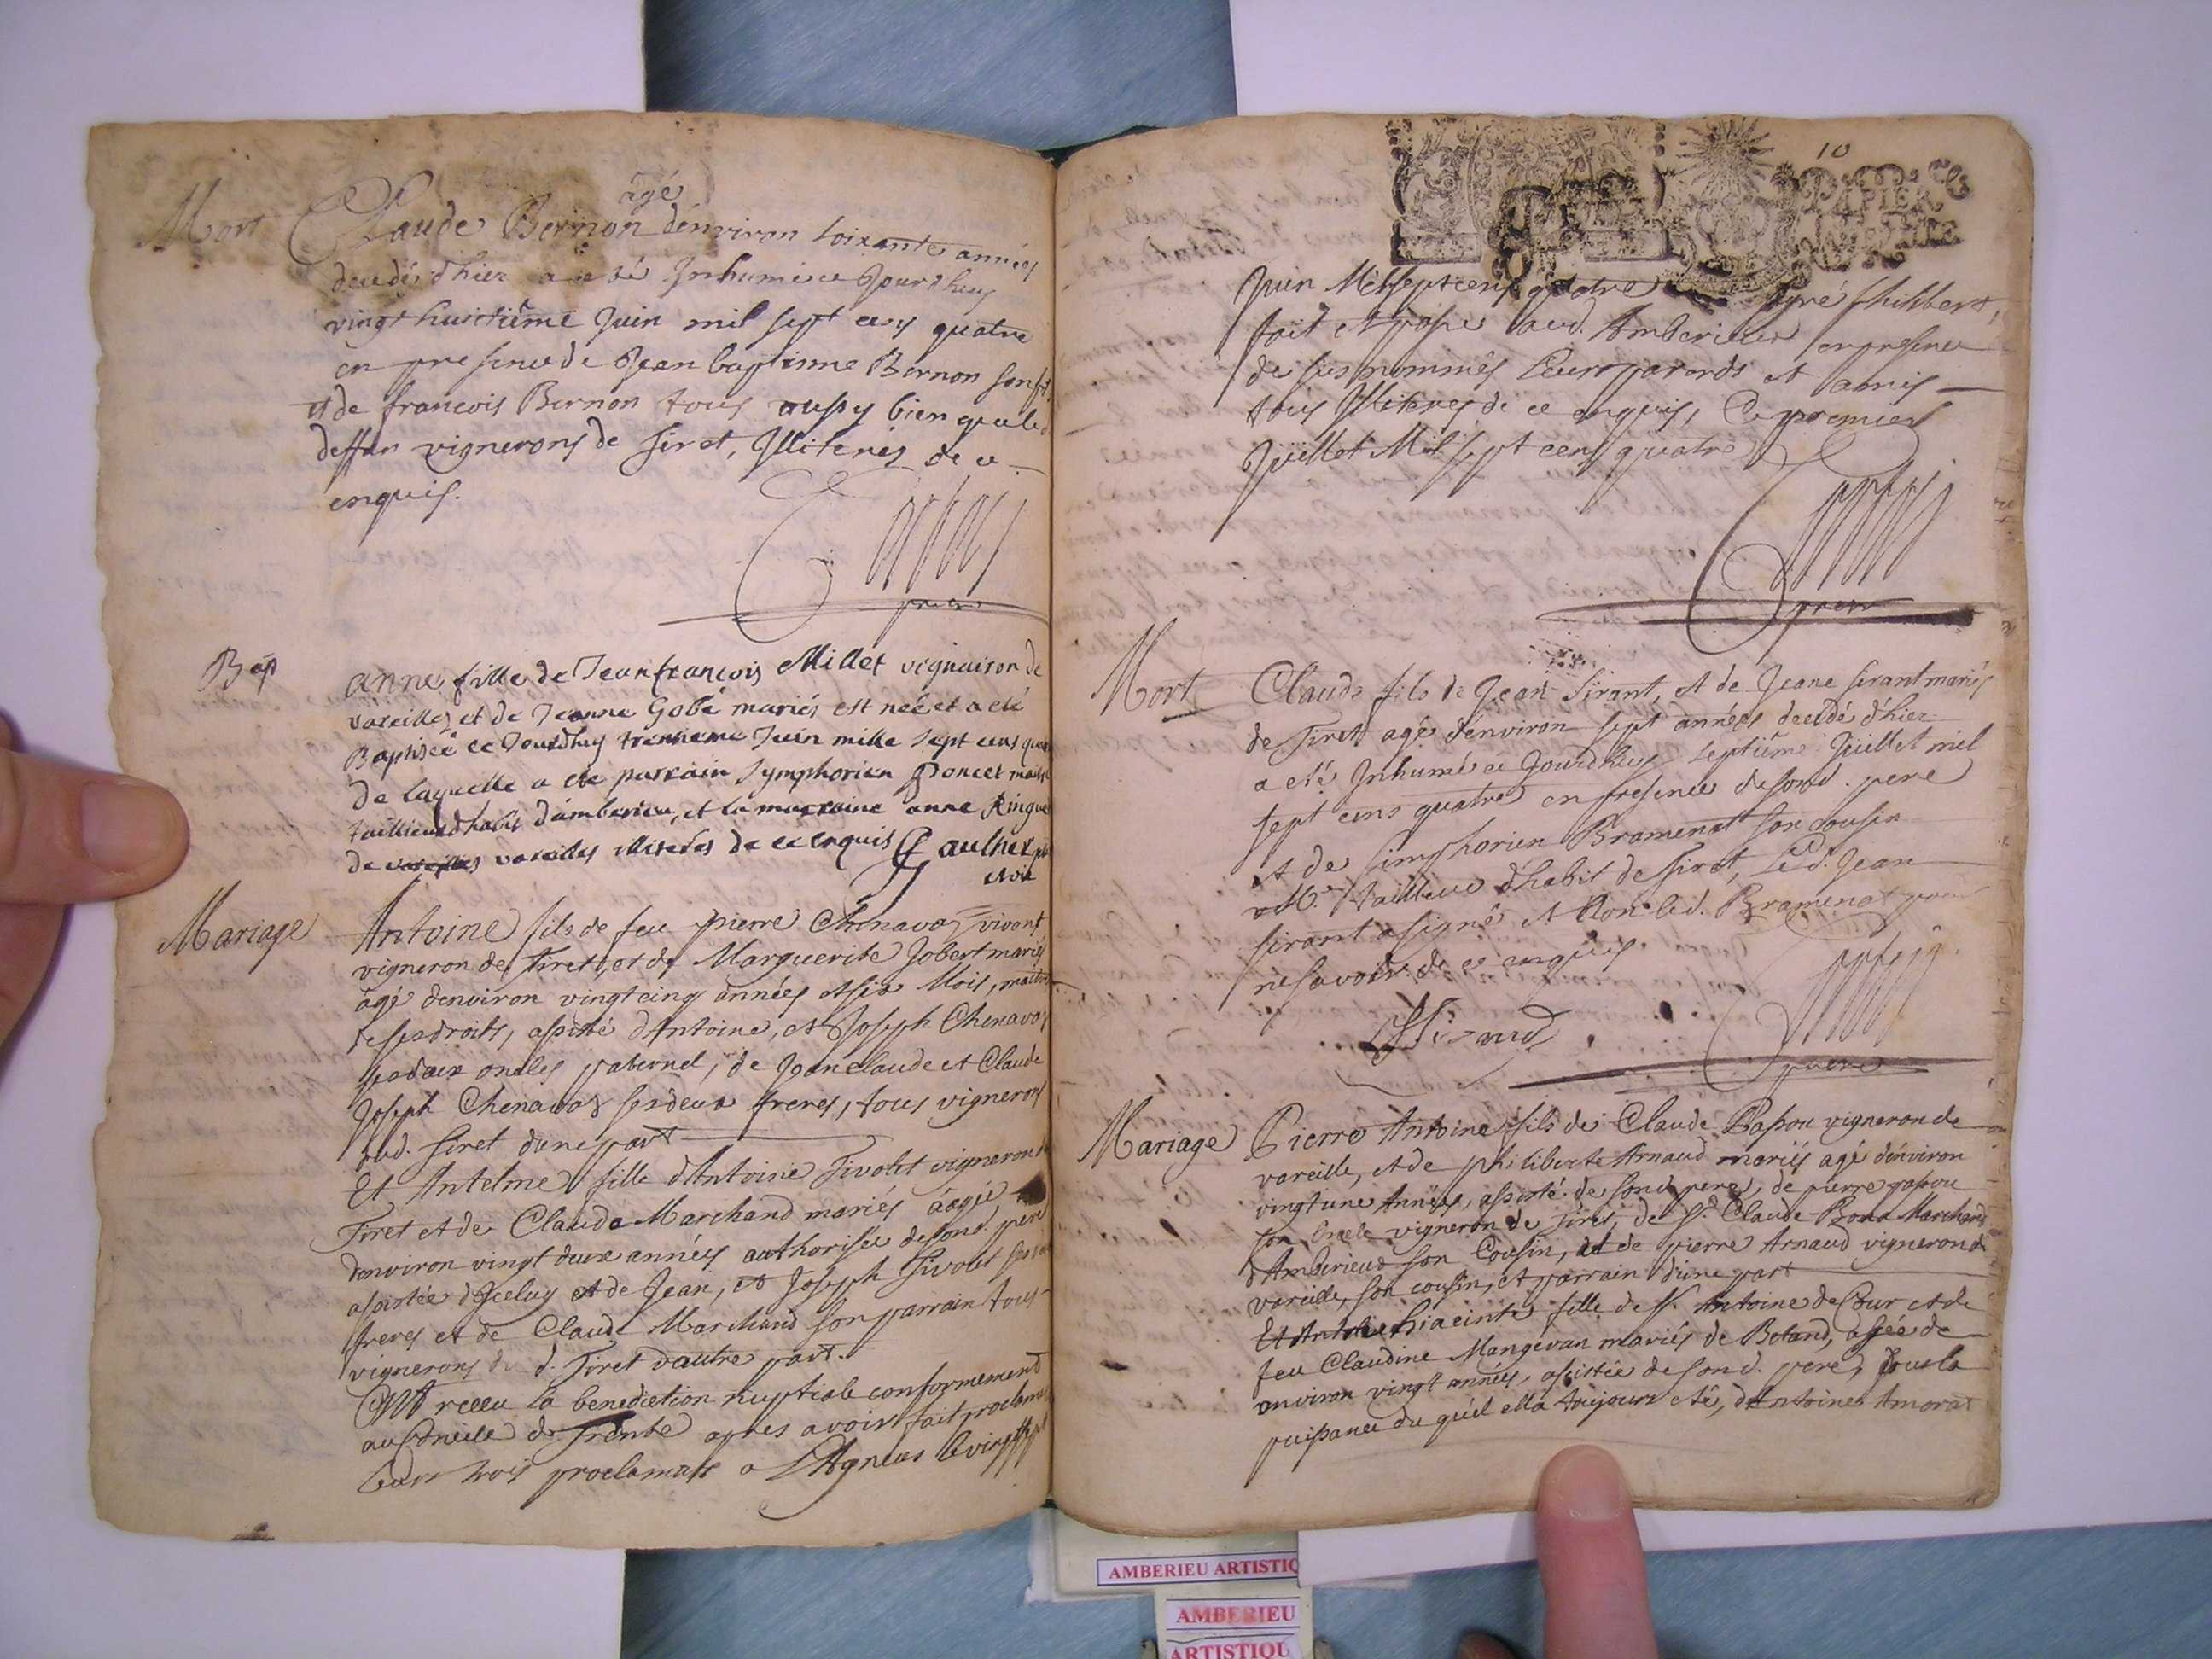 Mort
âgé
Claude Bernon d'environ soixante années
decedé d'hier a esté Inhumé ce Jourdhuy
vingt huictième Juin mil sept cens quatre
en presence de Jean baptisme Bernon son fils
et de francois Bernon tous aussy bien que led
deffun vignerons de Tiret, Illiterés de ce
enquis.
prier
Bap
anne fille de Jean francois Millet vigneiron de
vareilles et de Jeanne Gobé mariés est neé et a eté
Baptiseé ce Jourdhuy trentieme Juin mille sept cens quatre
De laquelle a ete parrain Symphorien Poncet maitre
tailleur dhabit d'amberieu, et la marraine anne
de vareilles vareilles illiterés de ce enquis Gauthier
Mariage
Antoine fils de feu pierre Chenavaz vivant
vigneron de Tiret, et de Marguerite Jobert mariés
âgé d'environ vingt cinq années et six Mois, maitre
de ses droits, assisté d'Antoine, et Joseph Chenavaz
ses deux oncles paternel, de Jean claude et Claude
Joseph Chenavaz ses deux freres, tous vignerons
aud. Tiret d'une part
Et Antelme fille d'Antoine Tivolet vigneron de
Tiret et de Claude Marchand mariés aâgée
d'environ vingt deux années authorisée de sond. pere
assistée d'Iceluy et de Jean, et Joseph Tivolet ses
freres et de Claude Marchand son parrain tous
vignerons du d. Tiret d'autre part.
Ont receu la benediction nuptiale conformement
au Concile de Trente apres avoir fait proclamer
leurs trois proclamats a L'Agnieus le vingt
10
Juin Mil sept cens quatre Philibert,
fait et passé aud. Amberieux en presence
de susnommés leurs parents et amis
tous Illiterés de ce enquis, Ce premier
Juillet Mil sept cens quatre
prier
Mort
Claude fils de Jean Sirant, et de Jeane Sirant mariés
de Tiret agé d'environ sept années decedé d'hier
a eté Inhumé ce Jourdhuy septième Juillet mil
sept cens quatre en presence de sond. pere
et de simphorien Bramenat son cousin
Mre tailleur d'habit de Tiret, Led. Jean
Sirant a signé et Non led. Bramenat pour
ne savoir de ce enquis
Mariage
Pierre Antoine fils de Claude Passou vigneron de
vareille, et de philiberte Arnaud mariés agé d'environ
vingt une Années, assisté de sond. pere, de pierre passou
son oncle vigneron de Tiret, de Sr. Claude Bona Marchand
d'Amberieux son Cousin, et de pierre Arnaud vigneron de
vareille, son cousin, et parrain d'une part
Et Hiacinte fille de Sr. Antoine de Cour et de
feu Claudine Mangevan mariés de Beland, agée de
environ vingt années, assistée de sond. pere, sous la
puissance du quel ella toujours eté, d'Antoine Amorat
AMBERIEU ARTISTIQ
AMBERIEU
ARTISTIQU